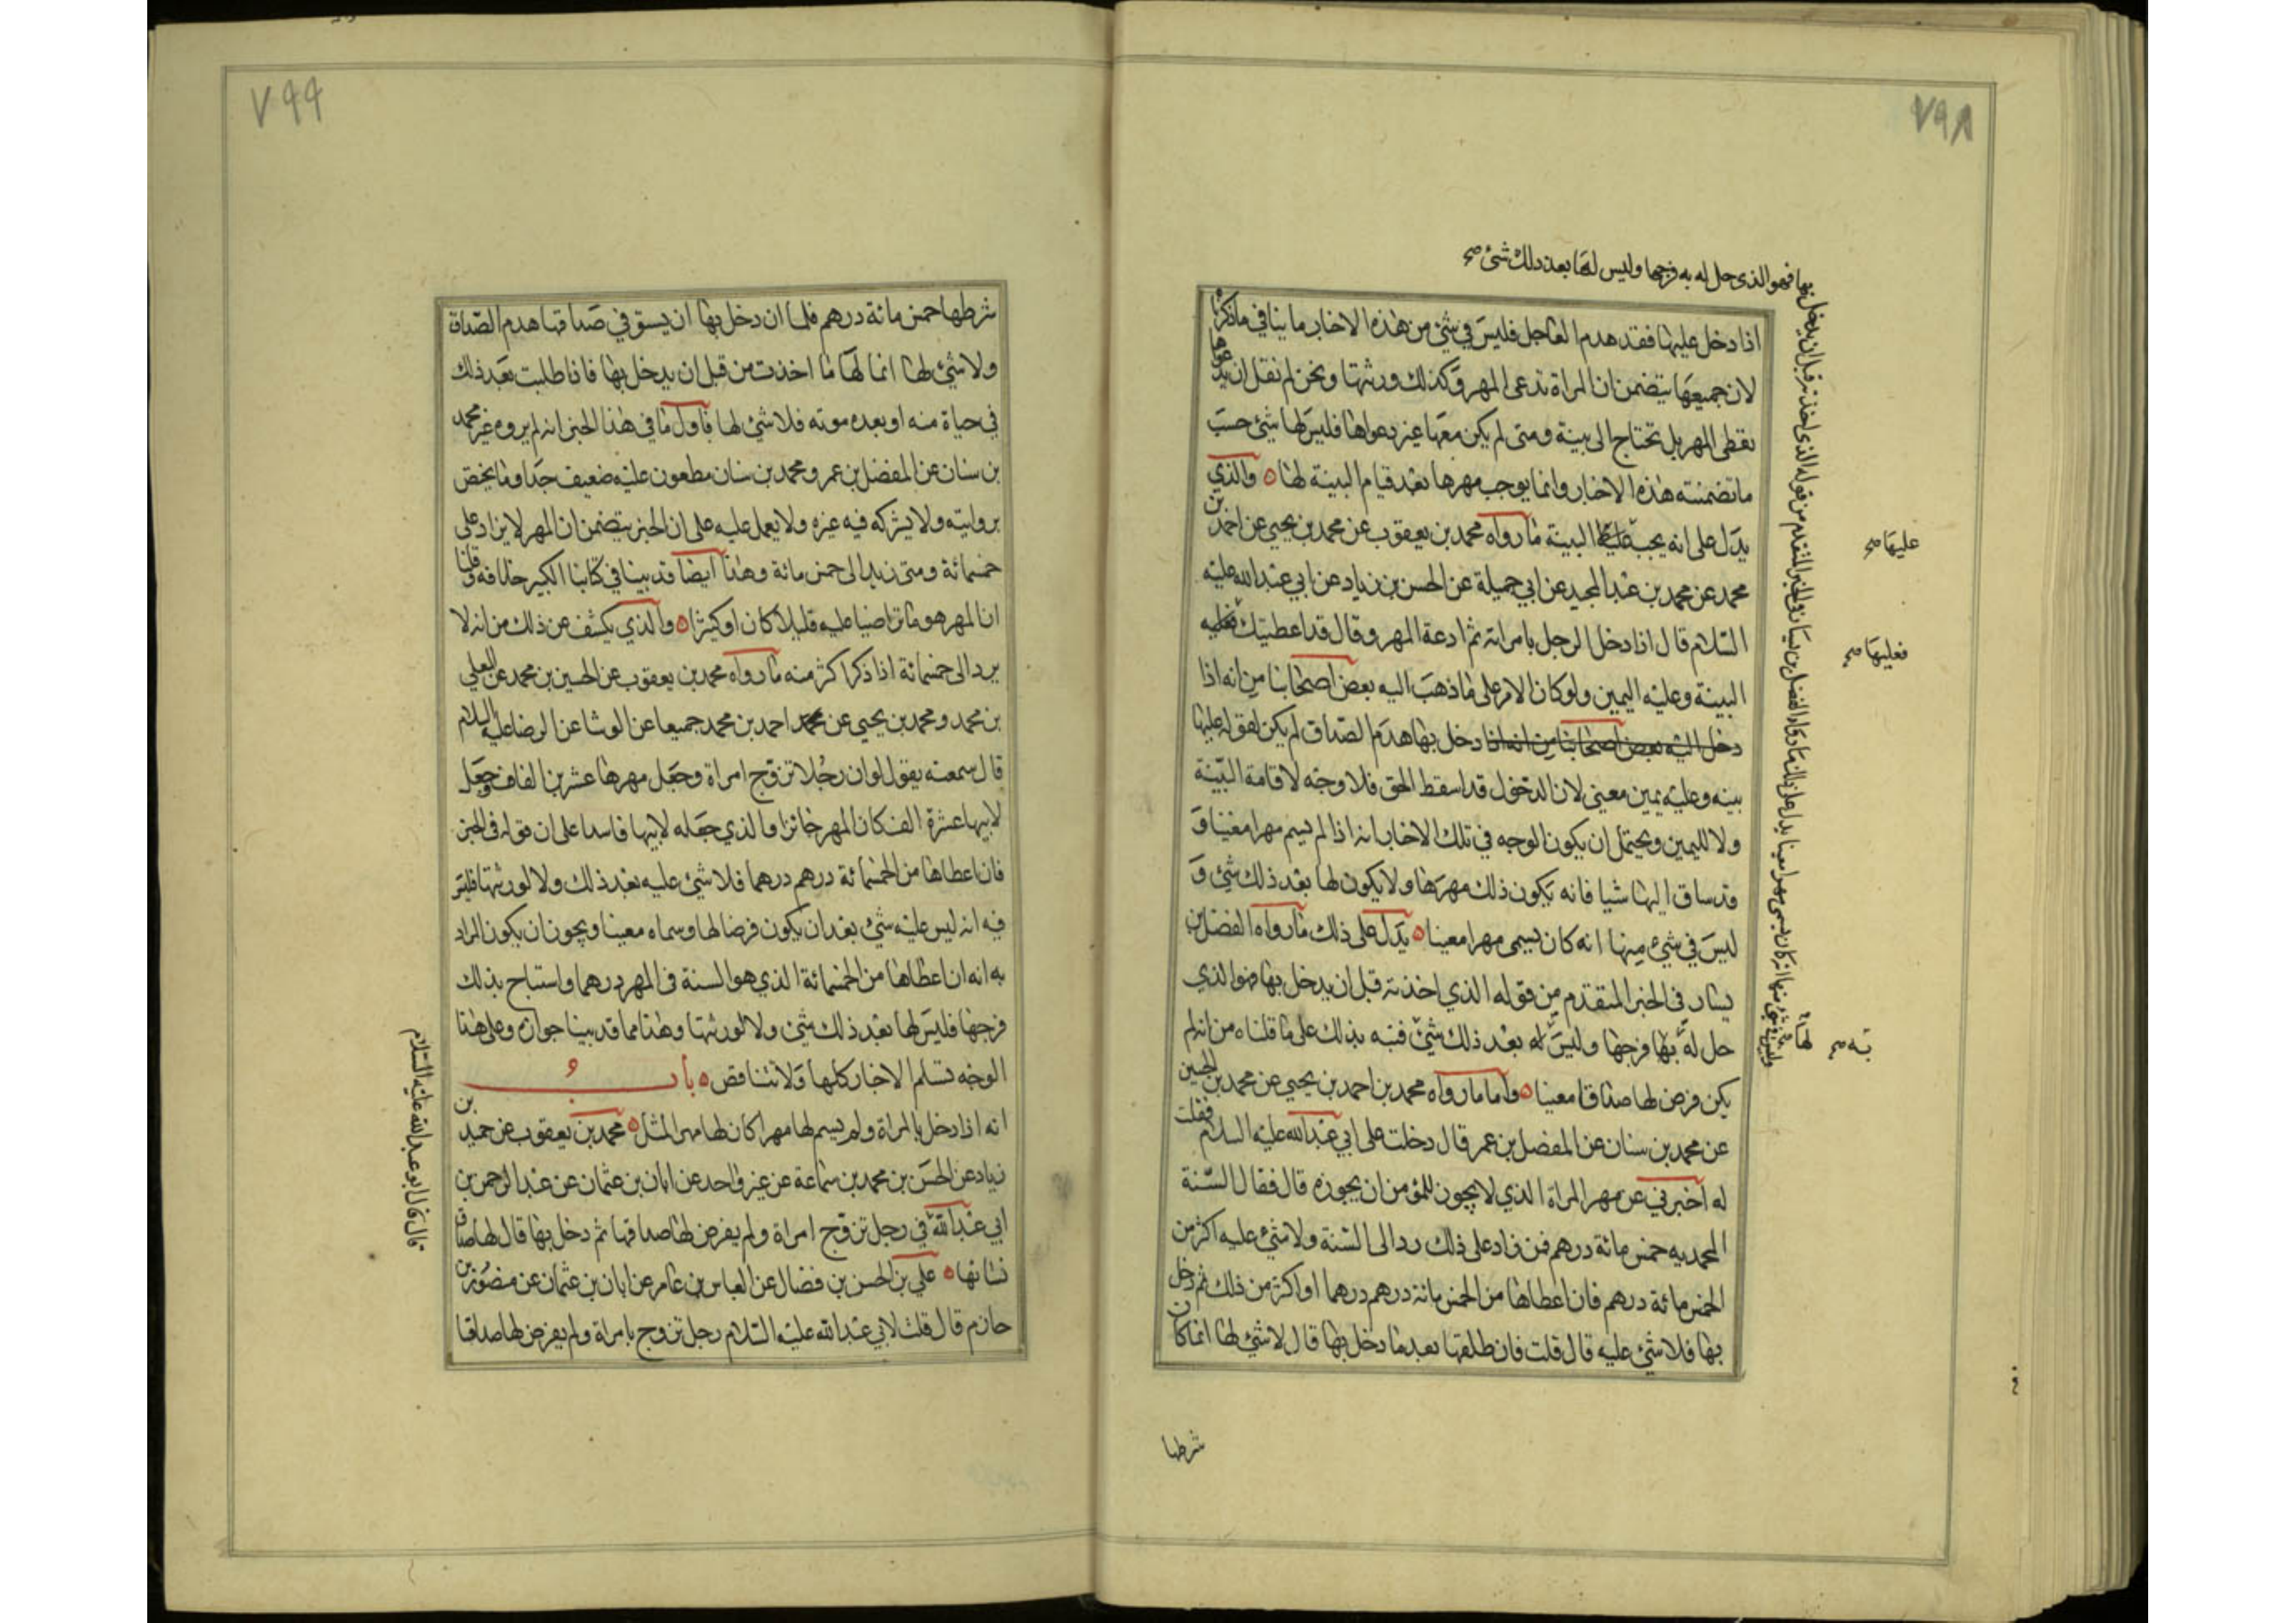 ٧٩٨
بها فهو الذى حل له به فرجها وليس لها بعد ذلك شئ صح
اذا دخل عليها فقد هدم العاجل فليس في شئ من هذه الاخبار ما ينافي ما ذكرنا
لان جميعها يتضمن ان المراة تدعى المهر وكذلك ورثتها ونحن لم نقل ان بدعواها
تعطى المهر بل تحتاج الى بينة ومتى لم يكن معها غير دعواها فليس لها شئ حسب
ما تضمنته هذه الاخبار وانما يوجب مهرها بعد قيام البينة لها ه والذي
يدل على انه يجب البينة ما رواه محمد بن يعقوب عن محمد بن يحيى عن احمد بن
محمد عن محمد بن عبد المجيد عن ابي جميلة عن الحسن بن زياد عن ابي عبد الله عليه
السلام قال اذا دخل الرجل بامراته ثم ادعة المهر وقال قد اعطيتك فعليه
البينة وعليه اليمين ولو كان الامر على ما ذهب اليه بعض اصحابنا من انه اذا
دخل اليه بعض اصحابنا من انه اذا دخل بها هدم الصداق لم يكن لقوله عليها
بينه وعليه يمين معنى لان الدخول قد اسقط الحق فلا وجه لاقامة البينة
ولا لليمين ويحتمل ان يكون الوجه في تلك الاخبار انه اذا لم يسم مهرا معينا و
قد ساق اليها شيا فانه يكون ذلك مهرها ولا يكون لها بعد ذلك شئ و
ليس في شئ منها انه كان يسمى مهرا معينا ه يدل على ذلك ما رواه الفضل بن
يسار في الخبر المتقدم من قوله الذي اخذته قبل ان يدخل بها فهو الذي
حل له بها فرجها وليس له بعد ذلك شئ فنبه بذلك على ما قلناه من انه لم
يكن فرض لها صداقا معينا ه واما ما رواه محمد بن احمد بن يحيى عن محمد بن الحسين
عن محمد بن سنان عن المفضل بن عمر قال دخلت على ابي عبد الله عليه السلام فقلت
له اخبرني عن مهر المراة الذي لا يجوز للمؤمن ان يجوزه قال فقال السنة
المحمديه خمس مائة درهم فمن زاد على ذلك رد الى السنة ولا شئ عليه اكثر من
الخمس مائة درهم فان اعطاها من الخمس مائة درهم درهما او اكثر من ذلك ثم دخل
بها فلا شئ عليه قال قلت فان طلقها بعد ما دخل بها قال لا شئ لها انما كان
شرطها
عليها صح
فعليها صح
لها
به صح
٧٩٩
شرطها خمس مائة درهم فلما ان دخل بها ان يستوفي صداقها هدم الصداق
ولا شئ لها انما لها ما اخذت من قبل ان يدخل بها فاذا طلبت بعد ذلك
في حياة منه او بعده موته فلا شئ لها فاول ما في هذا الخبر انه لم يروه غير محمد
بن سنان عن المفضل بن عمر ومحمد بن سنان مطعون عليه ضعيف جدا وما يختص
بروايته ولا يشركه فيه غيره ولا يعمل عليه على ان الخبر يتضمن ان المهر لا يزاد على
خمسمائة ومتى زيد الى خمس مائة وهذا ايضا قد بينا في كتابنا الكبير خلافه وقلنا
ان المهر هو ما تراضيا عليه قليلا كان او كثيرا ه والذي يكشف عن ذلك من انه لا
يرد الى خمسمائة اذا ذكر اكثر منه ما رواه محمد بن يعقوب عن الحسين بن محمد عن المعلى
بن محمد ومحمد بن يحيى عن احمد بن محمد جميعا عن الوشا عن الرضا عليه السلام
قال سمعته يقول لو ان رجلا تزوج امراة وجعل مهرها عشرين الفا وجعل
لابيها عشرة الف كان المهر جائزا والذي جعله لابيها فاسدا على ان قوله في الخبر
فان اعطاها من الخمسمائة درهم درهما فلا شئ عليه بعد ذلك ولا لورثتها فليس
فيه انه ليس عليه شئ بعد ان يكون فرضا لها وسماه معينا ويجوز ان يكون المراد
به انه ان اعطاها من الخمسمائة الذي هو السنة في المهر درهما واستباح بذلك
فرجها فليس لها بعد ذلك شئ ولا لورثتها وهذا مما قد بينا جوازه وعلى هذا
الوجه تسلم الاخبار كلها ولا تتناقض ه باب
انه اذا دخل بالمراة ولم يسم لها مهرا كان لها مهر المثل ه محمد بن يعقوب عن حميد بن
زياد عن الحسن بن محمد بن سماعة عن غير واحد عن ابان بن عثمان عن عبد الرحمن بن
ابي عبد الله في رجل تزوج امراة ولم يفرض لها صداقها ثم دخل بها قال لها صداق
نسائها ه علي بن الحسن بن فضال عن العباس بن عامر عن ابان بن عثمان عن منصور بن
حازم قال قلت لابي عبد الله عليه السلام رجل تزوج بامراة ولم يفرض لها صداقا
قال قال ابو عبد الله عليه السلام